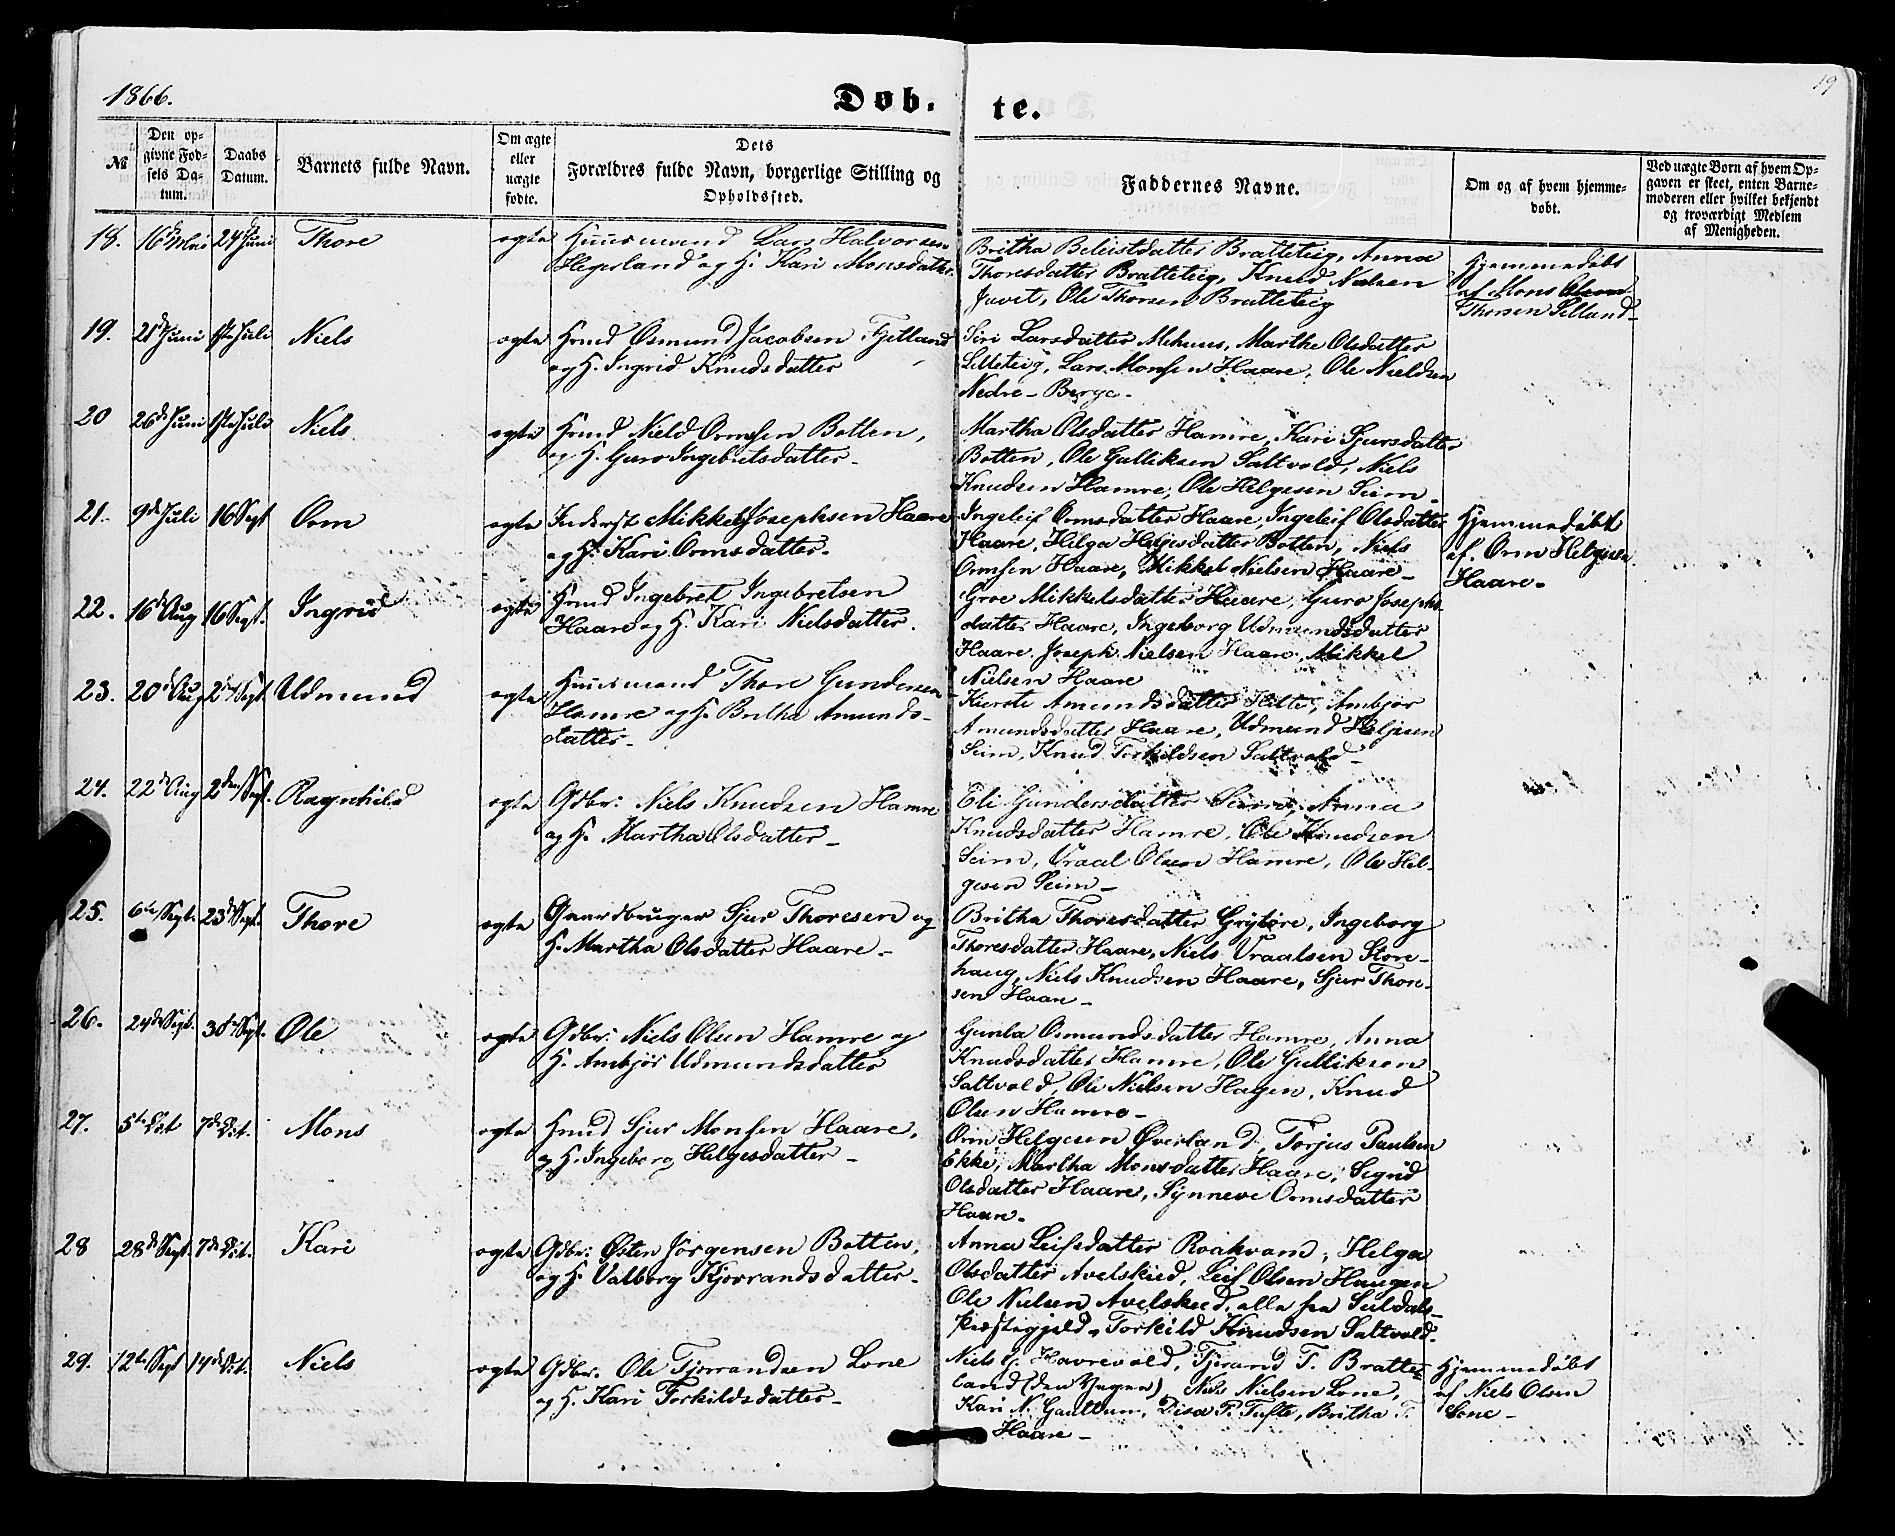 1866.
Døb. te.
19
№
Den op-
givne Fød-
sels Da-
tum.
Daabs
Datum.
Barnets fulde Navn.
Om ægte
eller
uægte
fødte.
Dets
Forældres fulde Navn, borgerlige Stilling og
Opholdssted.
Faddernes Navne.
Om og af hvem hjemme-
døbt.
Ved uægte Børn af hvem Op-
gaven er skeet, enten Barne-
moderen eller hvilket bekjendt
og troværdigt Medlem
af Menigheden.
18. 16d Mai 24d Juni Thore ægte Huusmand Lars Halvorsen
Hegerland og H. Kari Monsdatter
Britha Beleistdatter Bratteteig, Anna
Thoresdatter Bratteteig, Knud Nielsen
Juvet, Ole Thorsen Bratteteig
Hjemmedøbt
af Mons Olsen
Thorsen Selland
19. 21d Juni 1ste Juli Niels ægte Hmd Osmund Jacobsen Fjetland
og H. Ingrid Knudsdatter
Siri Larsdatter Mehuus, Marthe Olsdatter
Lilleteig, Lars Monsen Haare, Ole Nieldsen
Nedre-Berge.
20 26d Juni 1ste Juli Niels ægte Hmd Nield Ormsen Botten,
og H. Guro Ingebretsdatter
Martha Olsdatter Hamre, Kari Sjursdatter
Botten, Ole Gulliksen Saltvold, Niels
Knudsen Hamre, Ole Helgesen Seim
21. 9d Juli 16 Sept Orm ægte Inderst Mikkel Josephsen Haare
og H. Kari Ormsdatter.
Ingeleif Ormsdatter Haare, Ingeleif Olsdatter
Haare, Helga Helgesdatter Botten, Niels
Ormsen Haare, Mikkel Nielsen Haare
Hjemmedøbt
af Orm Helgesen
Haare.
22. 16d Aug 16 Sept. Ingrid ægte Hmd Ingebret Ingebretsen
Haare og H. Kari Nielsdatter.
Groe Mikkelsdatter Haare, Guro Josephs-
datter Haare, Ingeborg Udmundsdatter
Haare, Joseph Nielsen Haare, Mikkel
Nielsen Haare
23. 20d Aug 2den Sept. Udmund ægte Huusmand Thore Gundersen
Hamre og H. Britha Amunds-
datter
Kirsti Amundsdatter Helle, Ambjør
Amundsdatter Haare, Udmund Helgesen
Seim, Knud Torkildsen Saltvold
24. 22d Aug 2den Sept. Ragnhild ægte Gdbr. Niels Knudsen Hamre
og H. Martha Olsdatter
Eli Gundersdatter Seim, Anna
Knudsdatter Hamre, Ole Knudsen
Seim, Vraal Olsen Hamre, Ole Hel-
gesen Seim
25. 6te Sept. 23d Sept. Thore ægte Gaardbruger Sjur Thoresen og
H. Martha Olsdatter Haare
Britha Thoresdatter Grytøre, Ingeborg
Thoresdatter Haare, Niels Vraalsen Store-
haug, Niels Knudsen Haare, Sjur Thore-
sen Haare
26. 24d Sept. 30d Sept. Ole ægte Gdbr. Niels Olsen Hamre og
H. Ambjør Udmundsdatter
Gunla Osmundsdatter Hamre, Anna
Knudsdatter Hamre, Ole Gulliksen
Saltvold, Ole Nielsen Hagen, Knud
Olsen Hamre
27. 5te Oct 7d Oct. Mons ægte Hmd Sjur Monsen Haare,
og H. Ingeborg Helgesdatter
Orm Helgesen Øverland, Torjus Paulsen
Ekke, Martha Monsdatter Haare, Segrid
Olsdatter Haare, Synneve Ormsdatter
Haare.
28 28d Sept. 7d Oct. Kari ægte Gdbr. Østen Jørgensen Botten,
og H. Valborg Kjerrandsdatter
Anna Leifsdatter Roakvam, Helga
Olsdatter Avelskied, Leif Olsen Haugen
Ole Nielsen Avelskied, alle fra Suldals-
Præstegjeld, Torkild Knudsen Saltvold.
29. 12te Sept 14de Oct. Niels ægte Gdbr. Ole Tjerrandsen Lone
og H. Kari Torkildsdatter
Niels G. Havrevold, Tjerand T. Bratte-
land (den Yngre), Niels Nielsen Lone,
Kari N. Gautum, Disa P. Tufte, Britha T.
Haare
Hjemmedøbt
af Niels Olsen
Lone